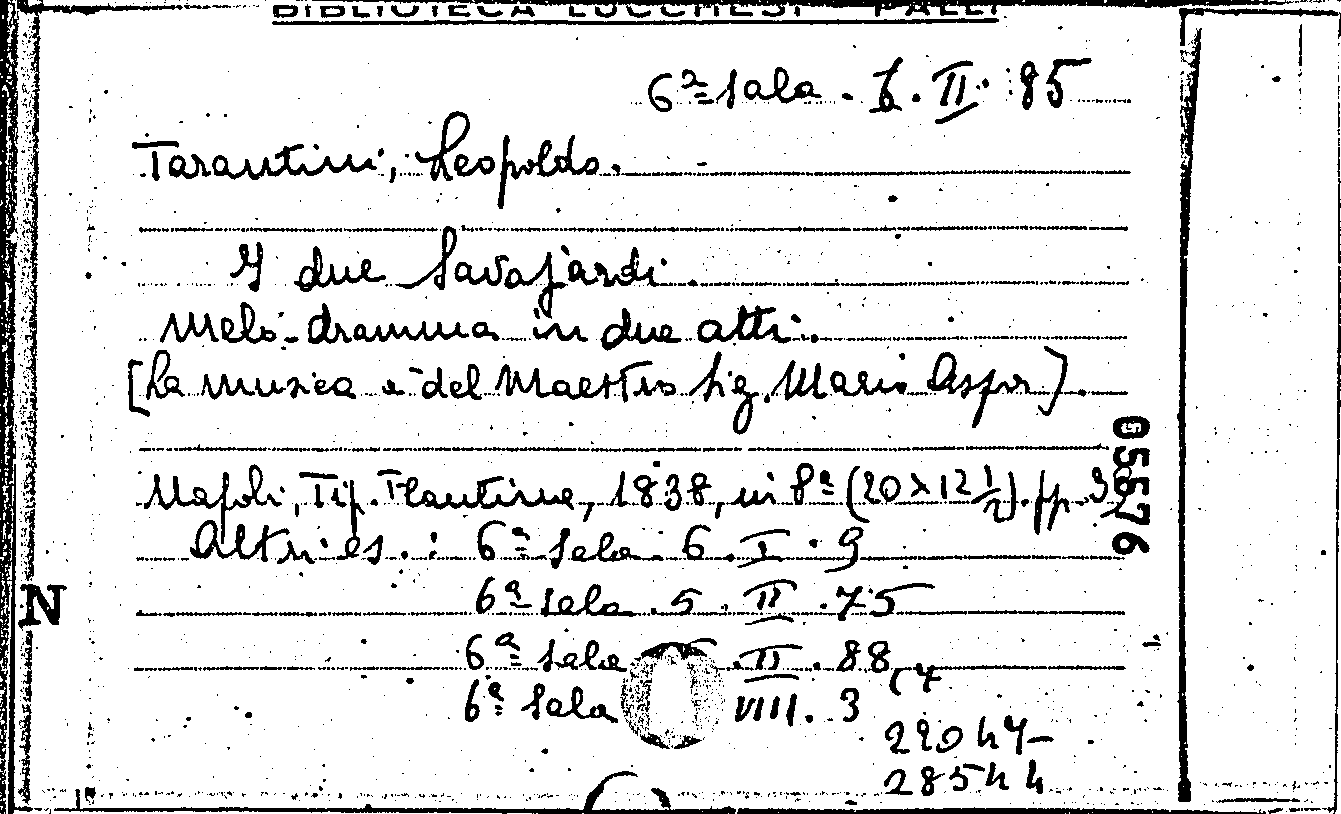 BIBLIOTECA LUCCHESI PALLI
6ª Sala. 6. II. 85
Tarantini, Leopoldo.
I due Savojardi.
Melo-dramma in due atti.
[La musica è del Maestro Sig. Mario Aspa].
Napoli, Tip. Flautina, 1838, in 8º (20 x 12 1/2). pp.
Altri es.: 6ª Sala. 6. I. 9
6ª Sala. 5. II. 75
6ª Sala II. 88
6ª Sala VIII. 3
05576
N